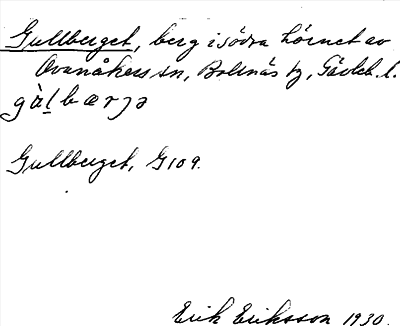 Gullberget, berg i södra hörnet av
Ovanåkers sn, Bollnäs tg, Gävleb. l.
gὰl̲bærjə
Gullberget, G109.
Erik Eriksson 1930.